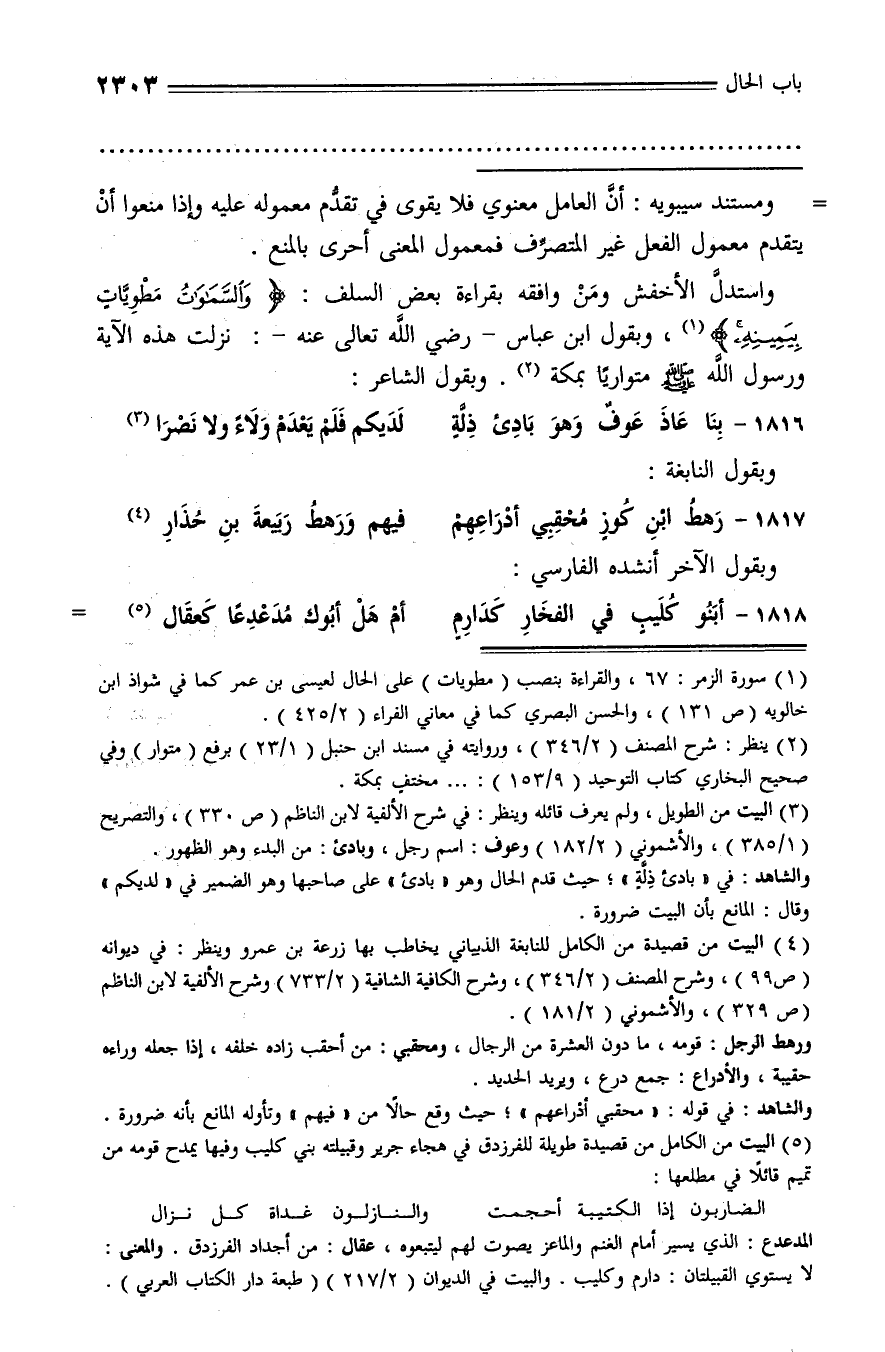 باب الحال ٢٣٠٣
= ومستند سيبويه : أنَّ العامل معنوي فلا يقوى في تقدُّم معموله عليه وإذا منعوا أنْ
يتقدم معمول الفعل غير المتصرِّف فمعمول المعنى أحرى بالمنع .
واستدلَّ الأخفش ومَنْ وافقه بقراءة بعض السلف : ﴿ وَٱلسَّمَٰوَٰتُ مَطْوِيَّاتٍ
بِيَمِينِهِۦ ﴾ (١) ، وبقول ابن عباس – رضي اللَّه تعالى عنه – : نزلت هذه الآية
ورسول اللَّه ﷺ متواريًا بمكة (٢) . وبقول الشاعر :
١٨١٦ – بِنَا عَاذَ عَوفٌ وَهوَ بَادِئ ذِلَّةٍ لَدَيكم فَلَمْ يَعْدَمْ وَلَاءً ولا نَصْرَا (٣)
وبقول النابغة :
١٨١٧ – رَهطُ ابْنِ كُوزٍ مُحْقِبِي أدْرَاعِهِمْ فيهم وَرَهطُ رَبَيعةَ بنِ حُذَارِ (٤)
وبقول الآخر أنشده الفارسي :
١٨١٨ – أبَنُو كُلَيبٍ في الفخَارِ كَدَارِمٍ أمْ هَلْ أبُوك مُدَعْدِعًا كَعقَال (٥) =
(١) سورة الزمر : ٦٧ ، والقراءة بنصب ( مطويات ) على الحال لعيسى بن عمر كما في شواذ ابن
خالويه ( ص ١٣١ ) ، والحسن البصري كما في معاني الفراء ( ٤٢٥/٢ ) .
(٢) ينظر : شرح المصنف ( ٣٤٦/٢ ) ، وروايته في مسند ابن حنبل ( ٢٣/١ ) برفع ( متوار ) وفي
صحيح البخاري كتاب التوحيد ( ١٥٣/٩ ) : ... مختفٍ بمكة .
(٣) البيت من الطويل ، ولم يعرف قائله وينظر : في شرح الألفية لابن الناظم ( ص ٣٣٠ ) ، والتصريح
( ٣٨٥/١ ) ، والأشموني ( ١٨٢/٢ ) وعوف : اسم رجل ، وبادئ : من البدء وهو الظهور .
والشاهد : في « بادئ ذِلَّةٍ » ؛ حيث قدم الحال وهو « بادئ » على صاحبها وهو الضمير في « لديكم »
وقال : المانع بأن البيت ضرورة .
(٤) البيت من قصيدة من الكامل للنابغة الذبياني يخاطب بها زرعة بن عمرو وينظر : في ديوانه
( ص٩٩ ) ، وشرح المصنف ( ٣٤٦/٢ ) ، وشرح الكافية الشافية ( ٧٣٣/٢ ) وشرح الألفية لابن الناظم
( ص ٣٢٩ ) ، والأشموني ( ١٨١/٢ ) .
ورهط الرجل : قومه ، ما دون العشرة من الرجال ، ومحقبي : من أحقب زاده خلفه ، إذا جعله وراءه
حقيبة ، والأدراع : جمع درع ، ويريد الحديد .
والشاهد : في قوله : « محقبي أذراعهم » ؛ حيث وقع حالًا من « فيهم » وتأوله المانع بأنه ضرورة .
(٥) البيت من الكامل من قصيدة طويلة للفرزدق في هجاء جرير وقبيلته بني كليب وفيها يمدح قومه من
تميم قائلًا في مطلعها :
الضاربون إذا الكتيبة أحجمت والنازلون غداة كل نزال
المدعدع : الذي يسير أمام الغنم والماعز يصوت لهم ليتبعوه ، عقال : من أجداد الفرزدق . والمعنى :
لا يستوي القبيلتان : دارم وكليب . والبيت في الديوان ( ٢١٧/٢ ) ( طبعة دار الكتاب العربي ) .